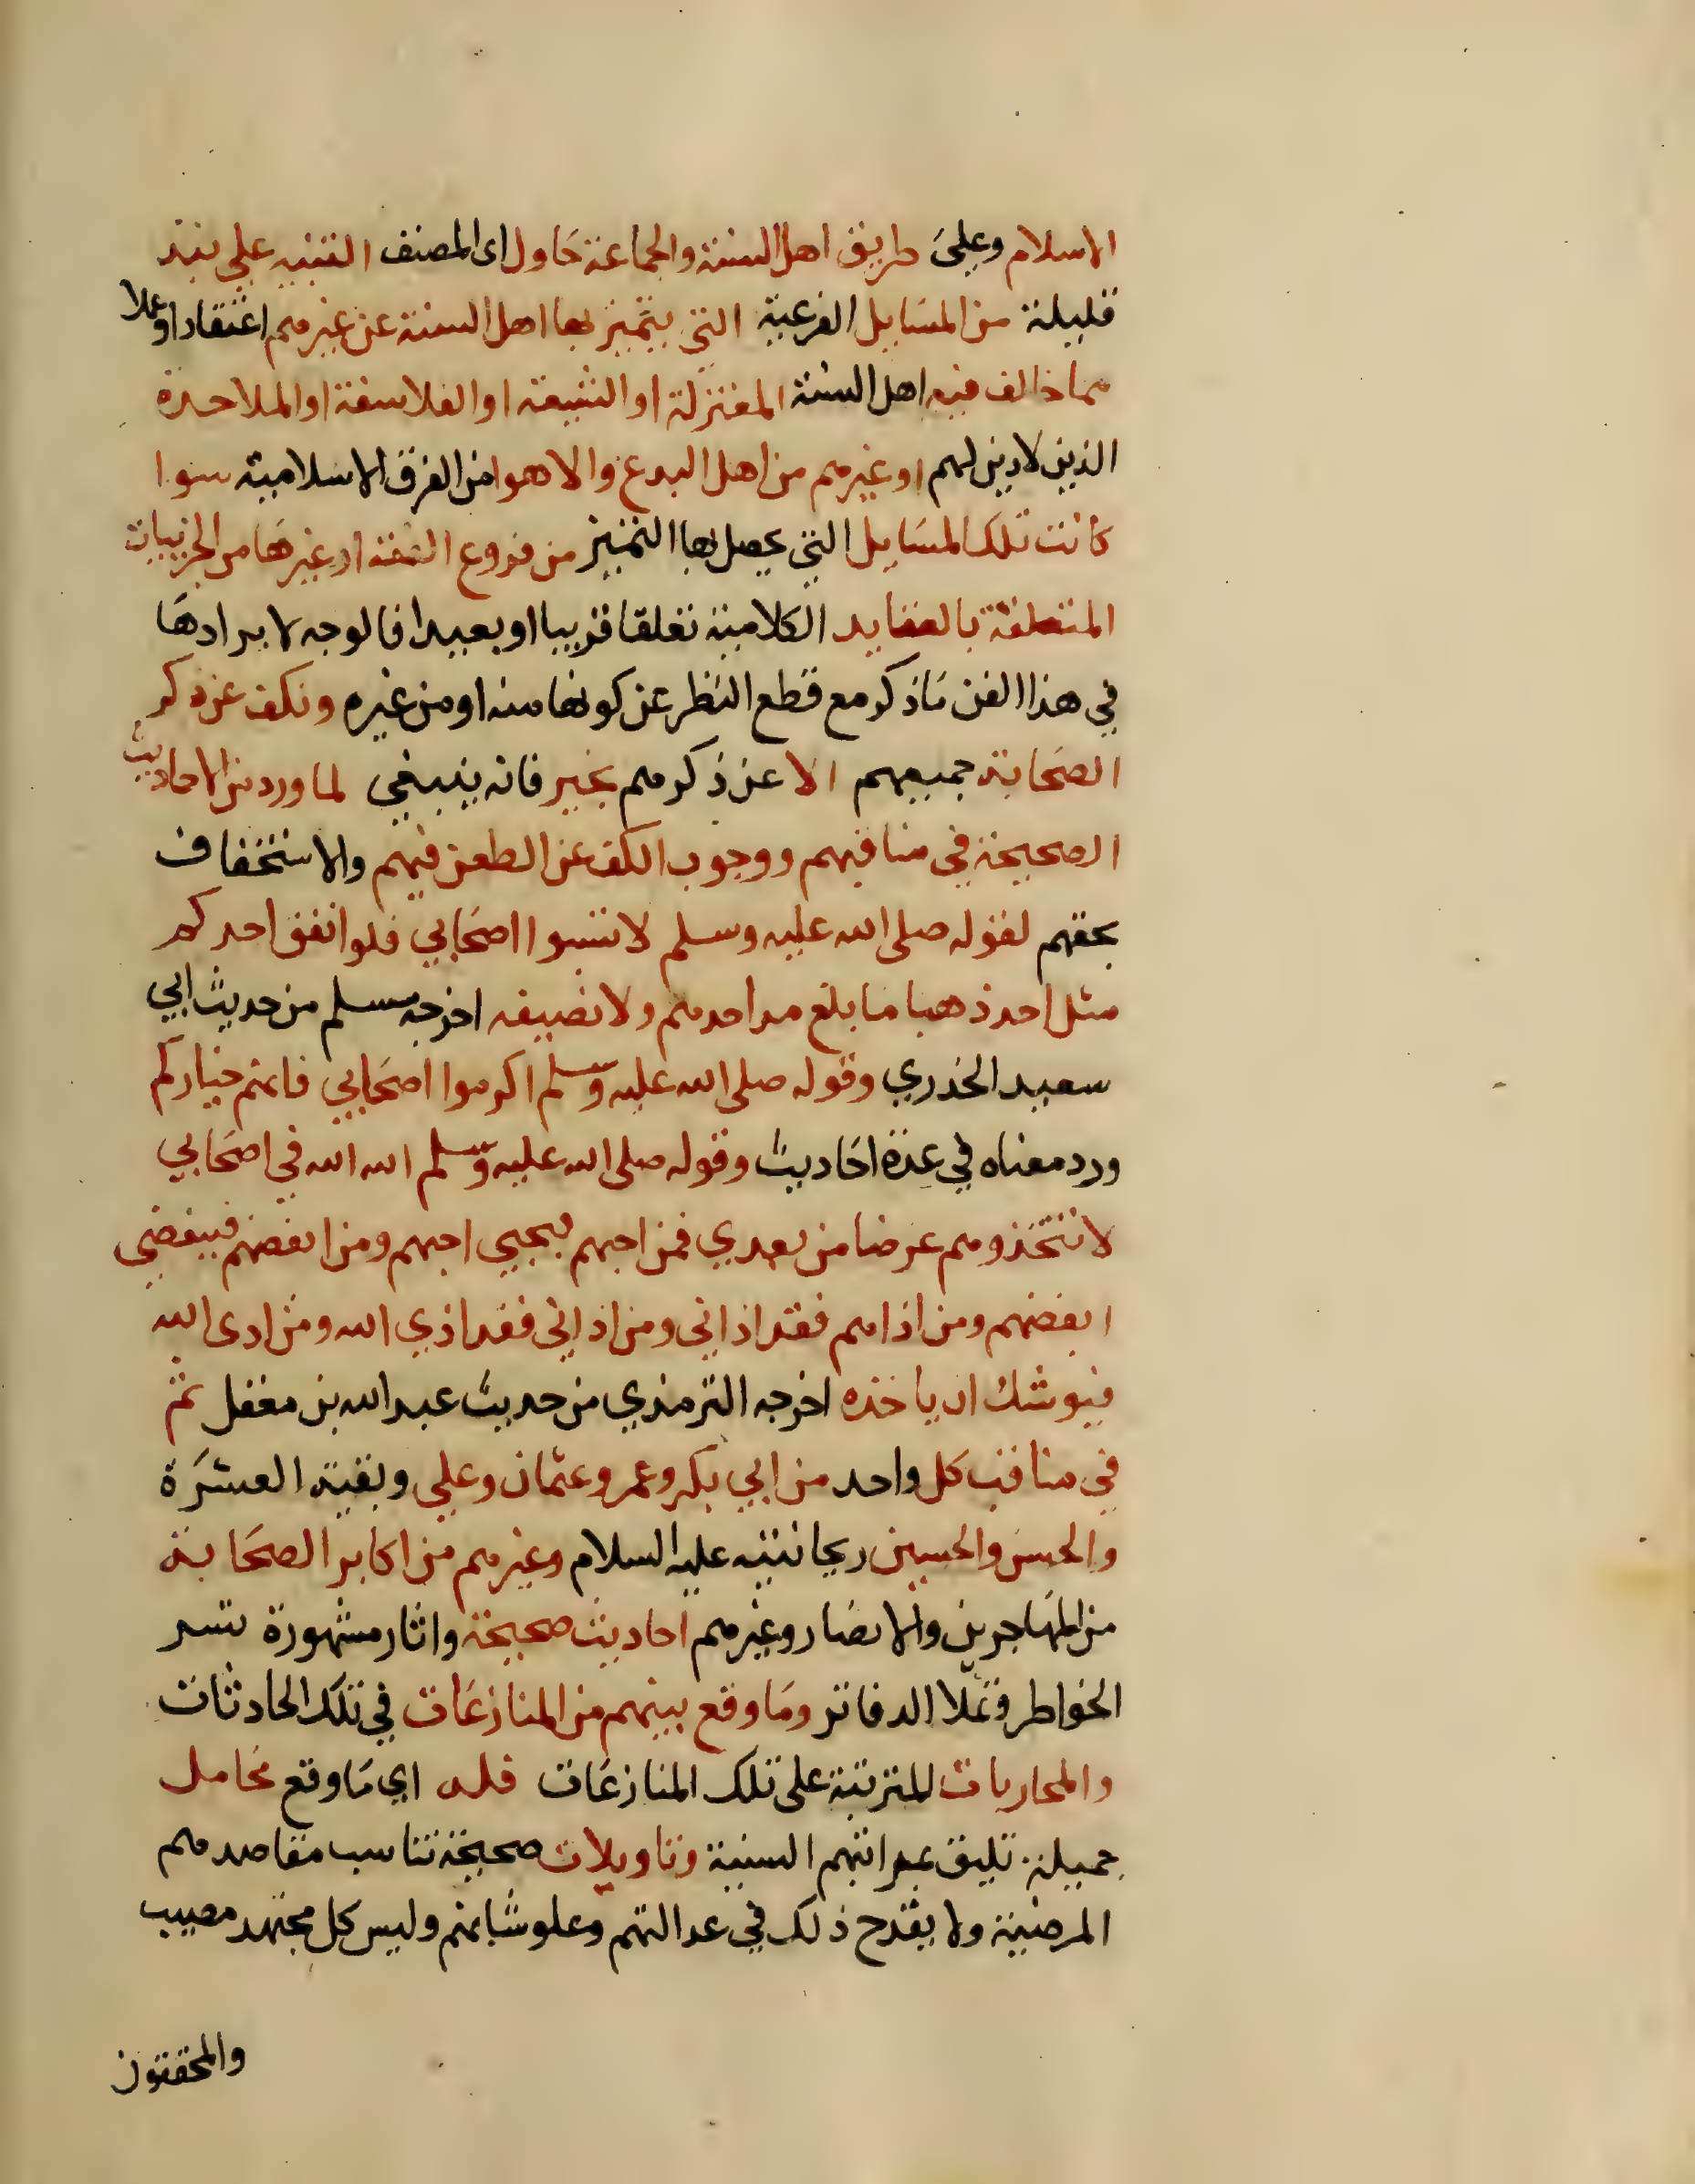 الاسلام وعلى طريق اهل السنة والجماعة حاول اى المصنف التنبيه علي نبذ
قليلة من المسايل الفرعية التي يتميز بها اهل السنة عن غيرهم اعتقادا وعملا
مما خالف فيه اهل السنة المعتزلة او الشيعة او الفلاسفة او الملاحدة
الذين لا دين لهم او غيرهم من اهل البدع والاهوا من الفرق الاسلامية سوا
كانت تلك المسايل التي يحصل بها التمييز من فروع الفقه او غيرها من الجزييات
المتعلقة بالعقايد الكلامية تعلقا قريبا او بعيدا فالوجه لايرادها
في هذا الفن ما ذكر مع قطع النظر عن كونها منه او من غيره ونكف عن ذكر
الصحابة جميعهم الا عن ذكرهم بخير فانه ينبغي لما ورد من الاحاديث
الصحيحة في مناقبهم ووجوب الكف عن الطعن فيهم والاستخفاف
بحقهم لقوله صلى الله عليه وسلم لا تسبوا اصحابي فلو انفق احدكم
مثل احد ذهبا ما بلغ مد احدهم ولا نصيفه اخرجه مسلم من حديث ابي
سعيد الخدري وقوله صلى الله عليه وسلم اكرموا اصحابي فانهم خياركم
ورد معناه في عدة احاديث وقوله صلى الله عليه وسلم الله الله في اصحابي
لا تتخذوهم غرضا من بعدي فمن احبهم فبحبي احبهم ومن ابغضهم فببغضي
ابغضهم ومن اذاهم فقد اذاني ومن اذاني فقد اذي الله ومن اذى الله
فيوشك ان ياخذه اخرجه الترمذي من حديث عبد الله بن مغفل ثم
في مناقب كل واحد من ابي بكر وعمر وعثمان وعلي وبقية العشرة
والحسن والحسين ريحانتيه عليه السلام وغيرهم من اكابر الصحابة
من المهاجرين والانصار وغيرهم احاديث صحيحة واثار مشهورة تسر
الخواطر وتملا الدفاتر وما وقع بينهم من المنازعات في تلك الحادثات
والمحاربات المترتبة على تلك المنازعات فله اي ما وقع محامل
جميلة تليق بمراتبهم السنية وتاويلات صحيحة تناسب مقاصدهم
المرضية ولا يقدح ذلك في عدالتهم وعلو شانهم وليس كل مجتهد مصيب
والمحققون